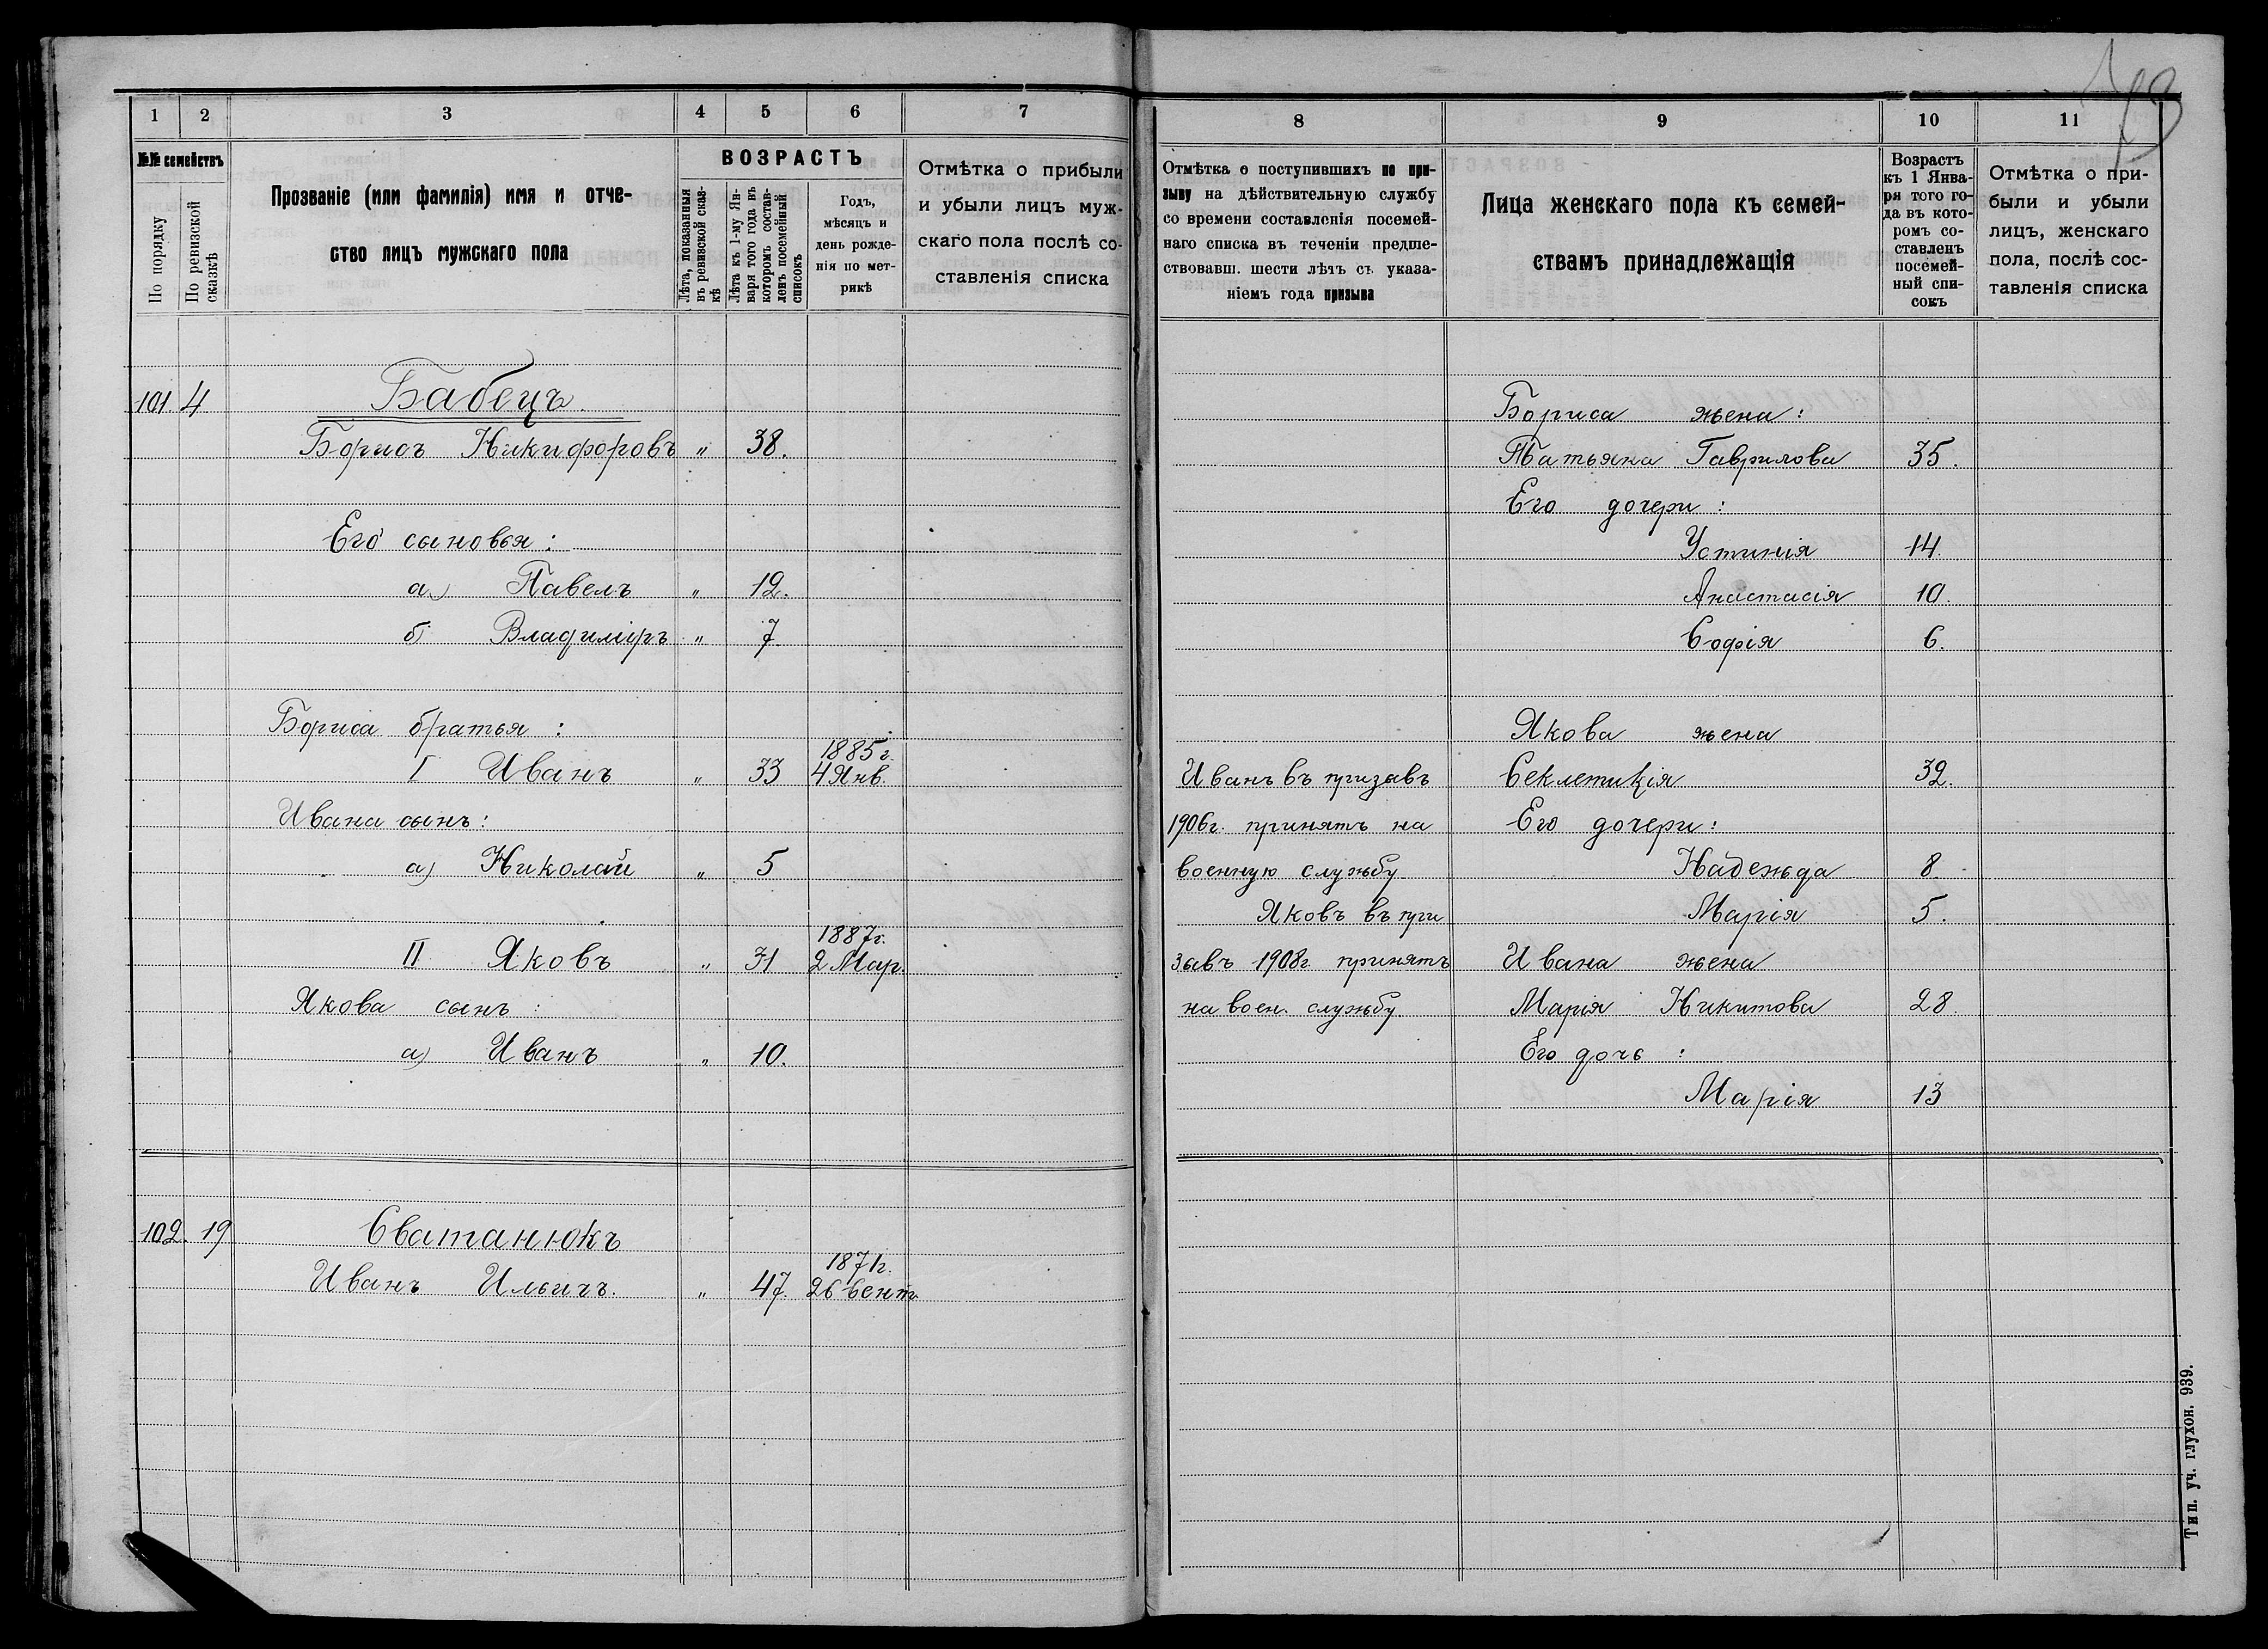 1 2 3 4 5 6 7
№№ семействъ
По порядку
По ревизской сказкѣ
Прозваніе (или фамилія) имя и отче-
ство лицъ мужскаго пола
ВОЗРАСТЪ
Лѣта, показанныя
въ ревизской сказ-
кѣ
Лѣта къ 1-му Ян-
варя того года въ
которомъ состав-
ленъ посемейный
списокъ
Годъ,
мѣсяцъ и
день рожде-
нія по мет-
рикѣ
Отмѣтка о прибыли
и убыли лицъ муж-
скаго пола послѣ со-
ставленія списка
101. 4 Бабецъ.
Борисъ Никифоровъ " 38.
Его сыновья:
а) Павелъ " 12.
б) Владиміръ " 7
Бориса братья:
1885 г.
I Иванъ " 33 4 Янв.
Ивана сынъ:
а) Николай " 5
1887 г.
II Яковъ " 31 2 Мар.
Якова сынъ:
а) Иванъ " 10.
102. 19 Сватанюкъ
1871 г.
Иванъ Ильичъ. " 47. 26 Сент.
8 9 10 11
Отмѣтка о поступившихъ по при-
зыву на дѣйствительную службу
со времени составленія посемей-
наго списка въ теченіи предше-
ствовавш. шести лѣтъ съ указа-
ніемъ года призыва
Лица женскаго пола къ семей-
ствамъ принадлежащія
Возрастъ
къ 1 Янва-
ря того го-
да въ кото-
ромъ со-
ставленъ
посемей-
ный спи-
сокъ
Отмѣтка о при-
были и убыли
лицъ, женскаго
пола, послѣ сос-
тавленія списка
Бориса жена:
Татьяна Гаврилова 35.
Его дочери:
Устинія 14.
Анастасія 10.
Софія 6.
Якова жена
Иванъ въ призывъ Секлетикія 32.
1906 г. принятъ на Его дочери:
военную службу Надежда 8.
Яковъ въ при Марія 5.
зывъ 1908 г. принятъ Ивана жена
на воен. службу. Марія Никитова 28.
Его дочь:
Марія 13
Тип. уч. глухон. 939.